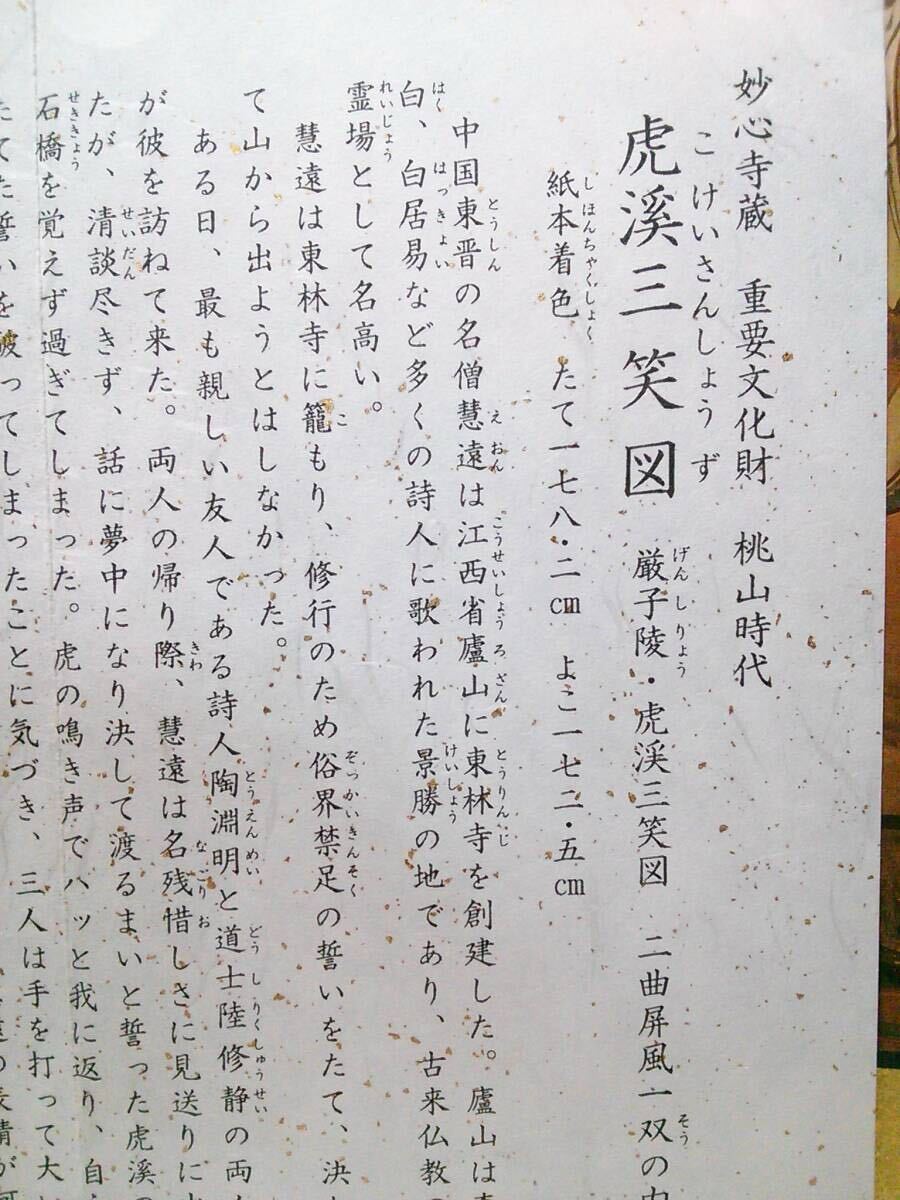 妙心寺蔵　重要文化財　桃山時代
こけいさんしょうず
虎溪三笑図
げんしりょう
厳子陵・虎渓三笑図　二曲屏風一双の
そう
しほんちゃくしょく
紙本着色　たて一七八・二㎝　よこ一七二・五㎝
とうしん　えおん　こうせいしょうろざん　とうりんじ
中国東晋の名僧慧遠は江西省廬山に東林寺を創建した。廬山は
はく　はっきょい　けいしょう
白、白居易など多くの詩人に歌われた景勝の地であり、古来仏教
れいじょう
霊場として名高い。
こ　ぞっかいきんそく
慧遠は東林寺に籠もり、修行のため俗界禁足の誓いをたて、決
て山から出ようとはしなかった。
とうえんめい　どうしりくしゅうせい
ある日、最も親しい友人である詩人陶淵明と道士陸修静の両
きわ　なごりお
が彼を訪ねて来た。両人の帰り際、慧遠は名残惜しさに見送りに
せいだん
たが、清談尽きず、話に夢中になり決して渡るまいと誓った虎溪の
せききょう
石橋を覚えず過ぎてしまった。虎の鳴き声でハッと我に返り、自
たてた誓いを破ってしまったことに気づき、三人は手を打って大